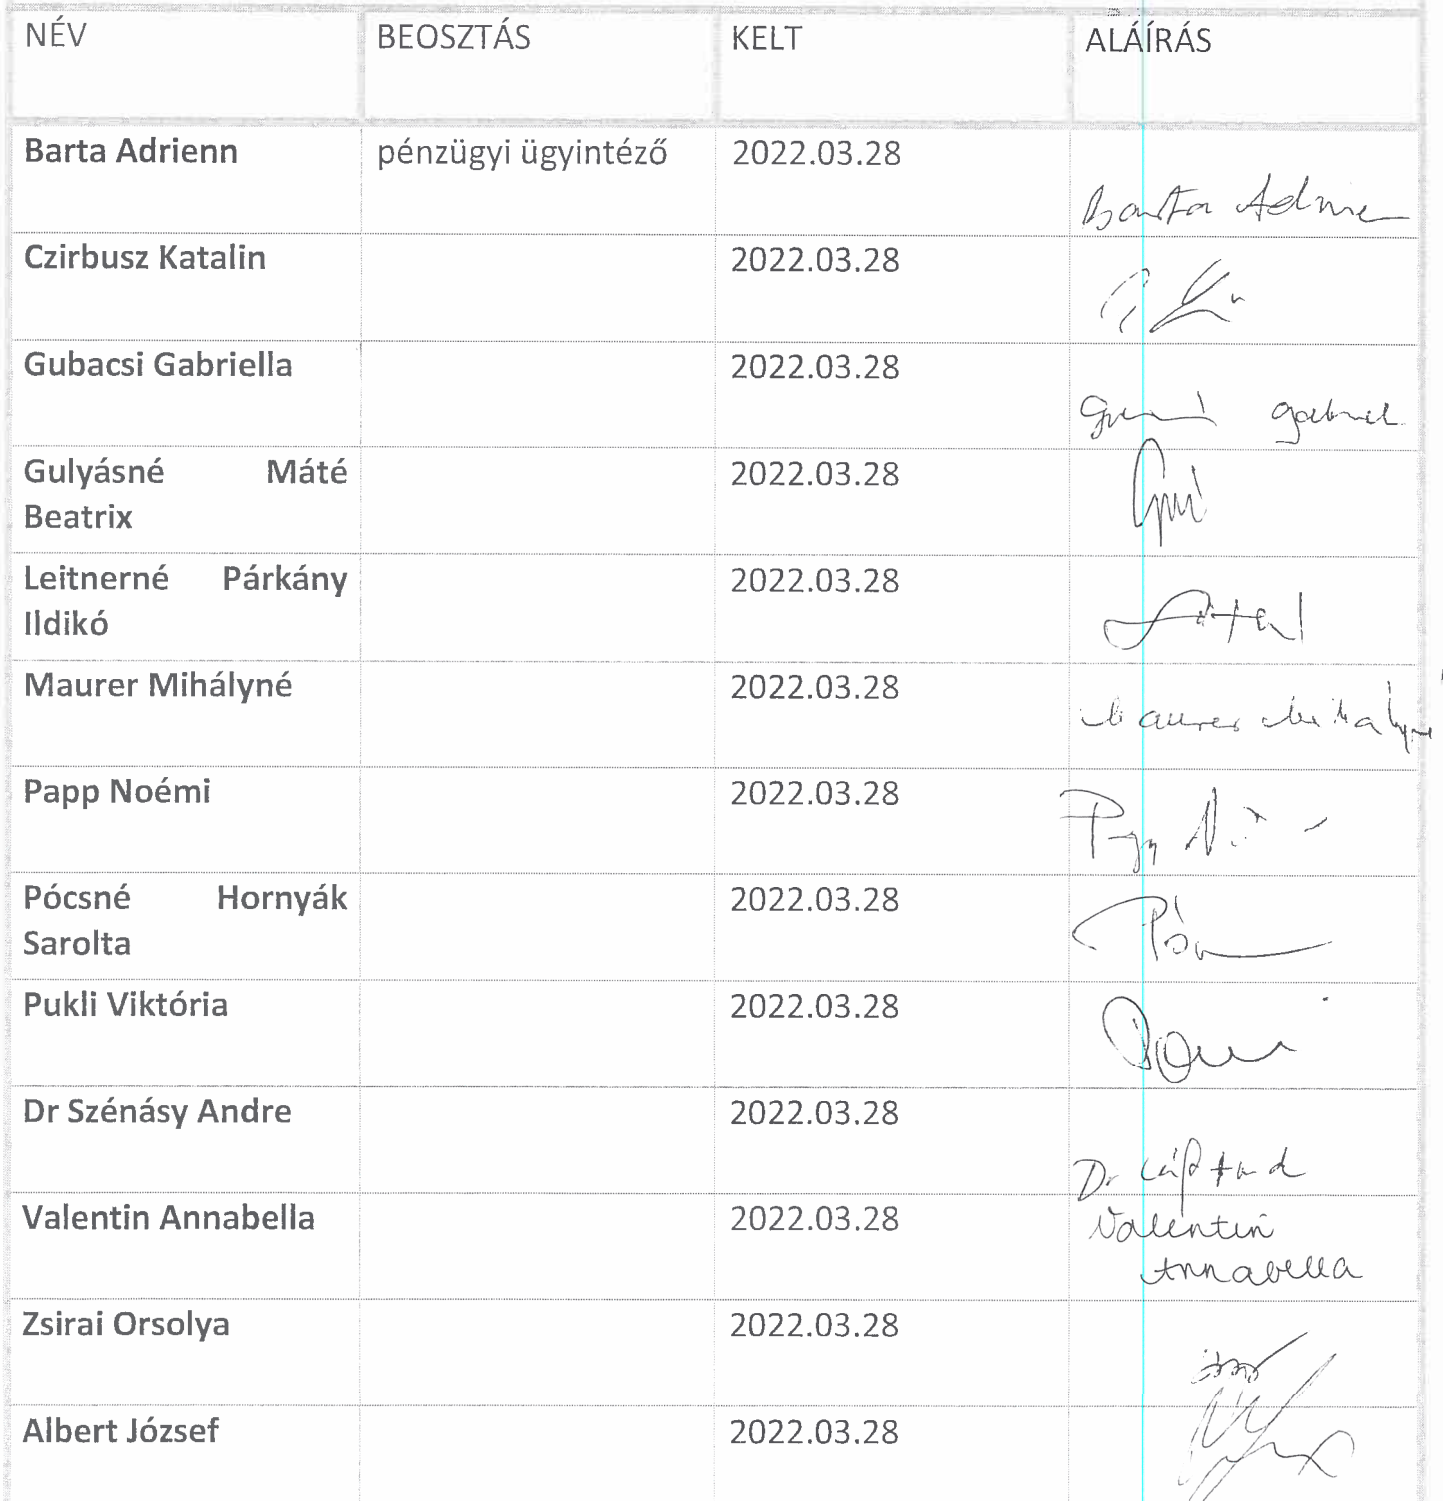 NÉV BEOSZTÁS KELT ALÁÍRÁS
Barta Adrienn pénzügyi ügyintéző 2022.03.28
Barta Adrienn
Czirbusz Katalin 2022.03.28
Gubacsi Gabriella 2022.03.28
Gulyásné Máté 2022.03.28
Beatrix
Leitnerné Párkány 2022.03.28
Ildikó
Maurer Mihályné 2022.03.28
Maurer Mihályné
Papp Noémi 2022.03.28
Papp
Pócsné Hornyák 2022.03.28
Sarolta
Pukli Viktória 2022.03.28
Dr Szénásy Andre 2022.03.28
Dr
Valentin Annabella 2022.03.28
Valentin
Annabella
Zsirai Orsolya 2022.03.28
Albert József 2022.03.28